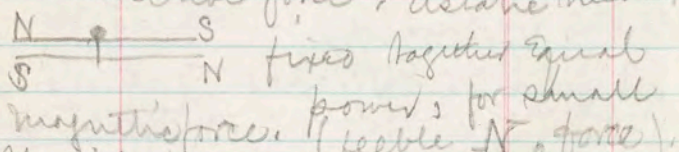 N S
S N fixed together Equal
powers for small
magnetic force. (feeble N. force).